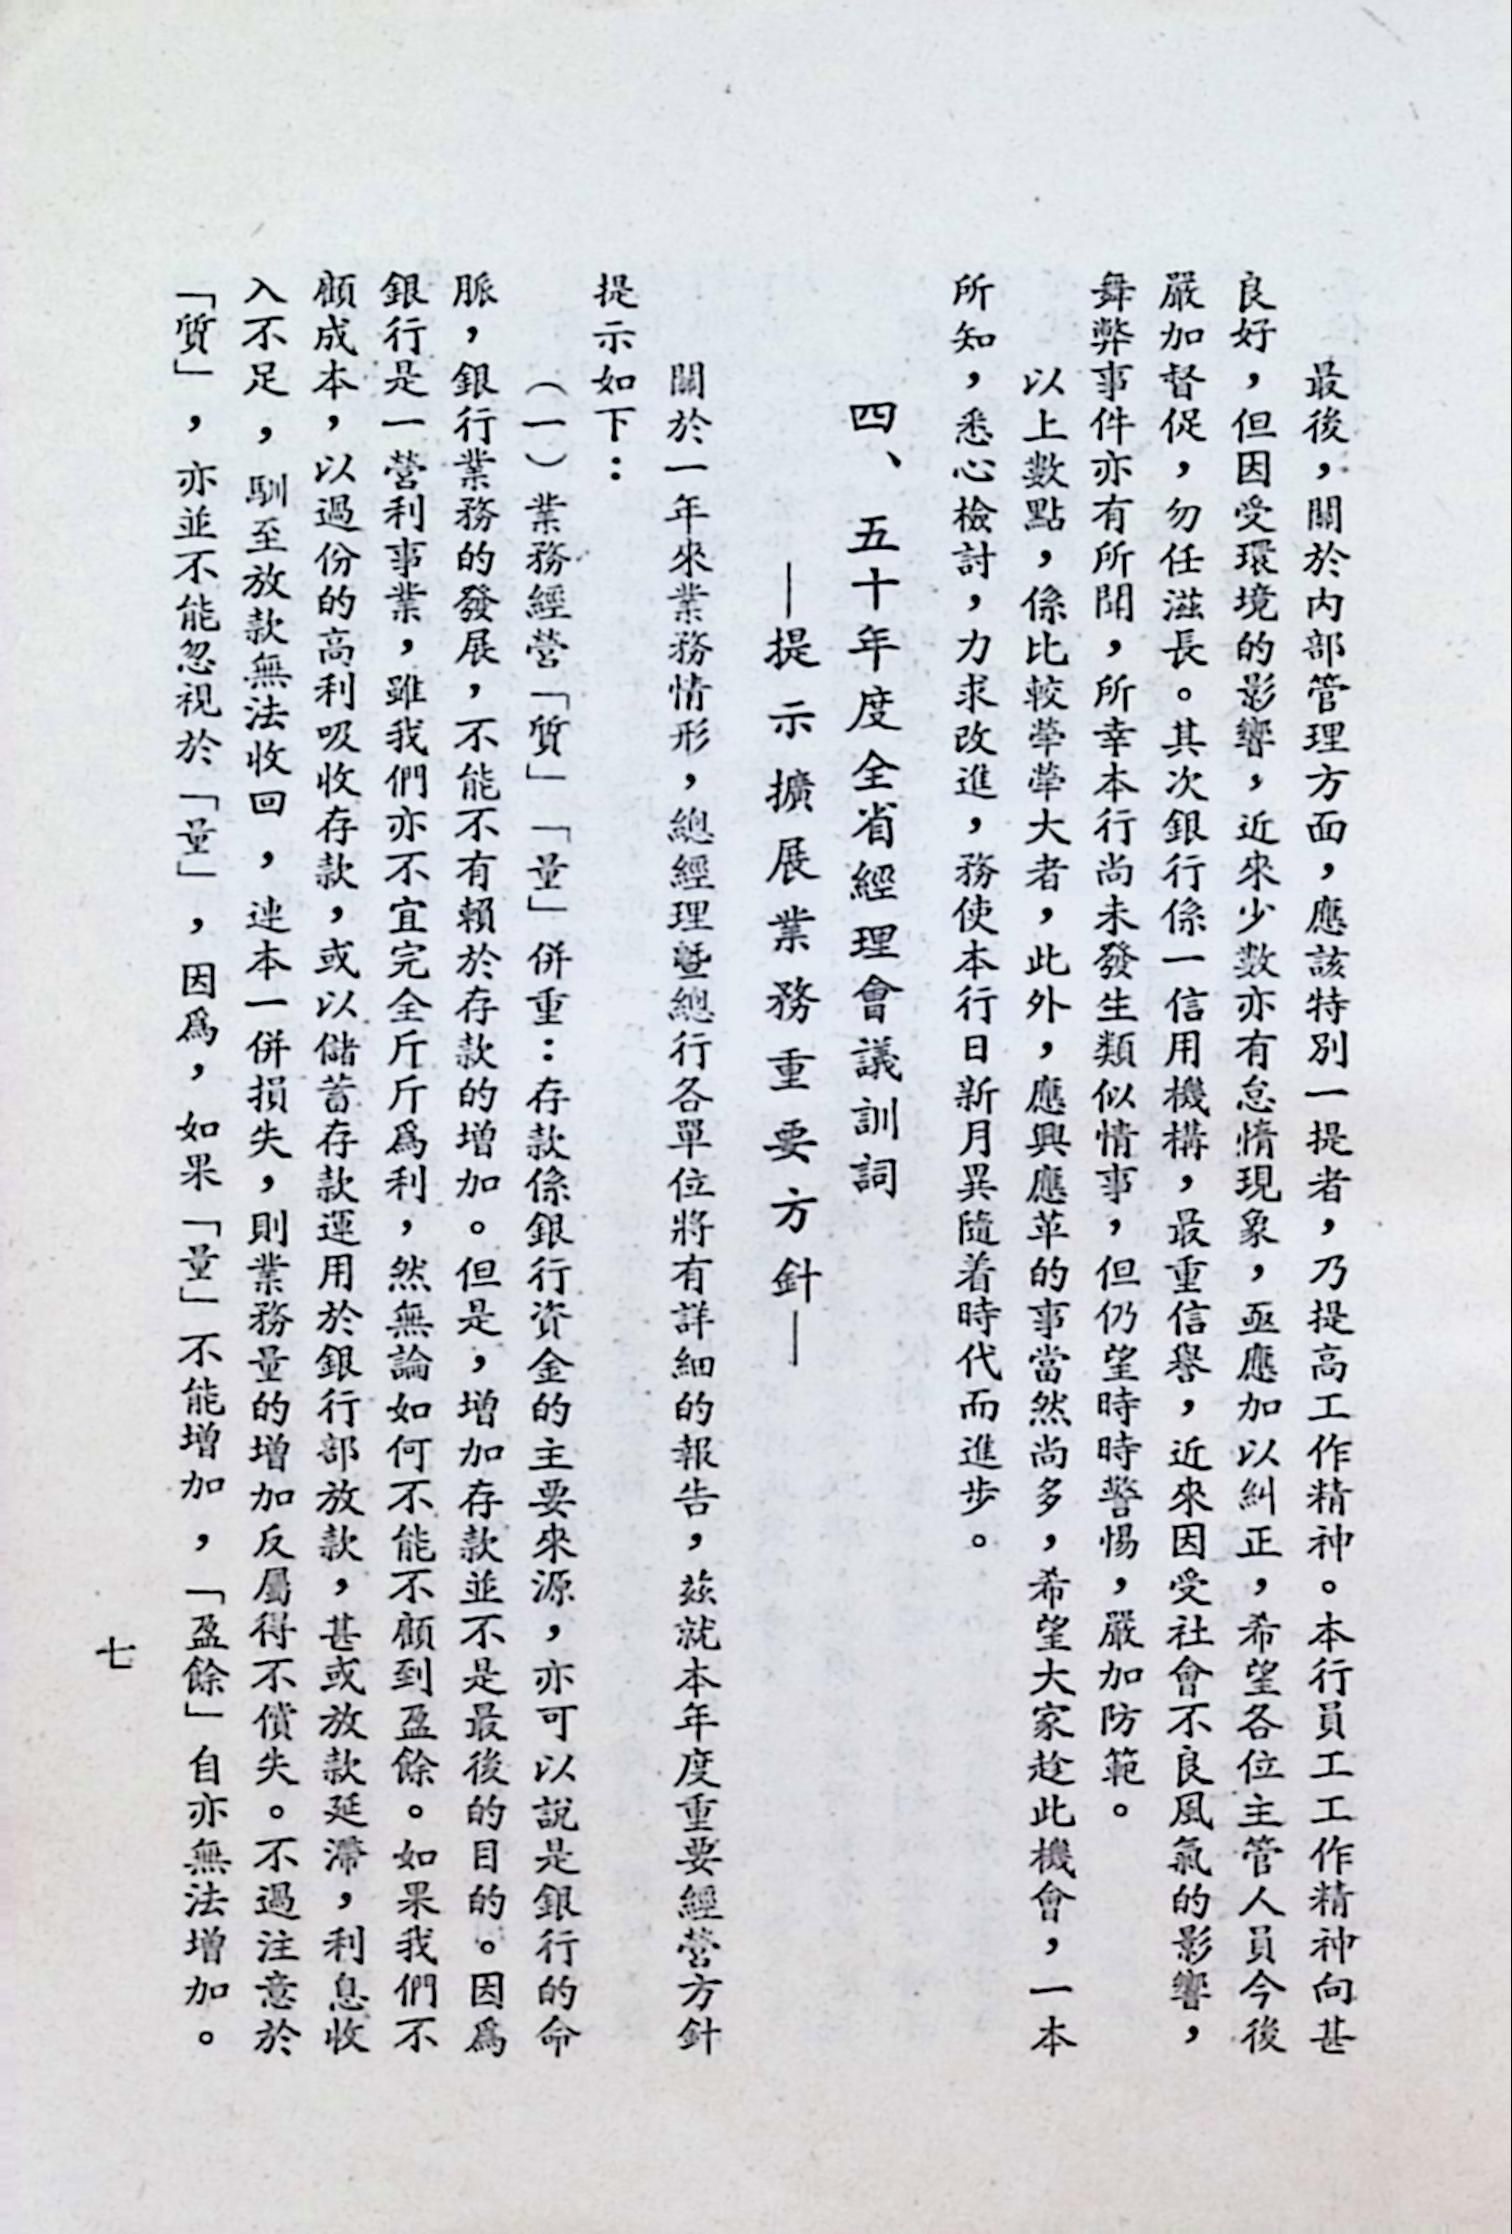 最後，關於內部管理方面，應該特別一提者，乃提高工作精神。本行員工工作精神向甚
良好，但因受環境的影響，近來少數亦有怠惰現象，亟應加以糾正，希望各位主管人員今後
嚴加督促，勿任滋長。其次銀行係一信用機構，最重信譽，近來因受社會不良風氣的影響，
舞弊事件亦有所聞，所幸本行尚未發生類似情事，但仍望時時警惕，嚴加防範。
以上數點，係比較犖犖大者，此外，應興應革的事當然尚多，希望大家趁此機會，一本
所知，悉心檢討，力求改進，務使本行日新月異隨着時代而進步。
四、五十年度全省經理會議訓詞
—提示擴展業務重要方針—
關於一年來業務情形，總經理暨總行各單位將有詳細的報告，茲就本年度重要經營方針
提示如下：
（一）業務經營「質」「量」併重：存款係銀行資金的主要來源，亦可以說是銀行的命
脈，銀行業務的發展，不能不有賴於存款的增加。但是，增加存款並不是最後的目的。因爲
銀行是一營利事業，雖我們亦不宜完全斤斤爲利，然無論如何不能不顧到盈餘。如果我們不
顧成本，以過份的高利吸收存款，或以儲蓄存款運用於銀行部放款，甚或放款延滯，利息收
入不足，馴至放款無法收回，連本一併損失，則業務量的增加反屬得不償失。不過注意於
「質」，亦並不能忽視於「量」，因爲，如果「量」不能增加，「盈餘」自亦無法增加。
七